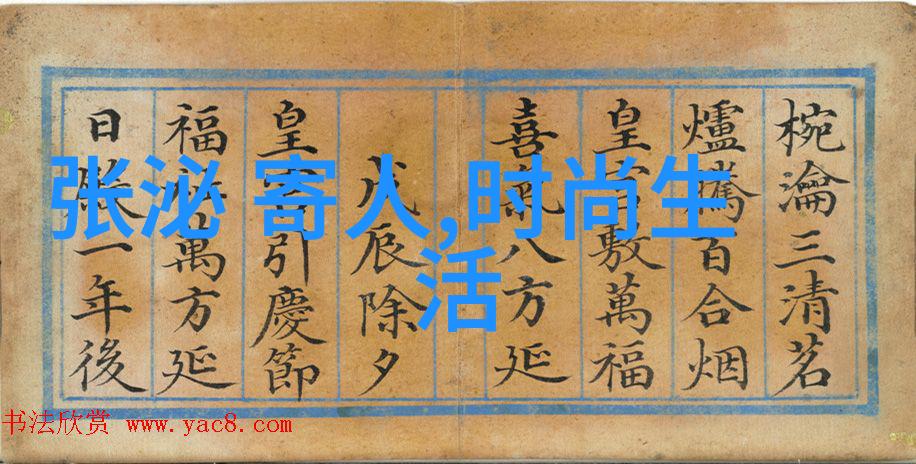 椀瀹三清茗
爐騰百合烟
皇宮敷萬福
喜氣八方延
戊辰除夕
皇 引慶節
福 萬方延
日 一年後
张泌 寄人,时尚生
活
书法欣赏 www.yac8.com